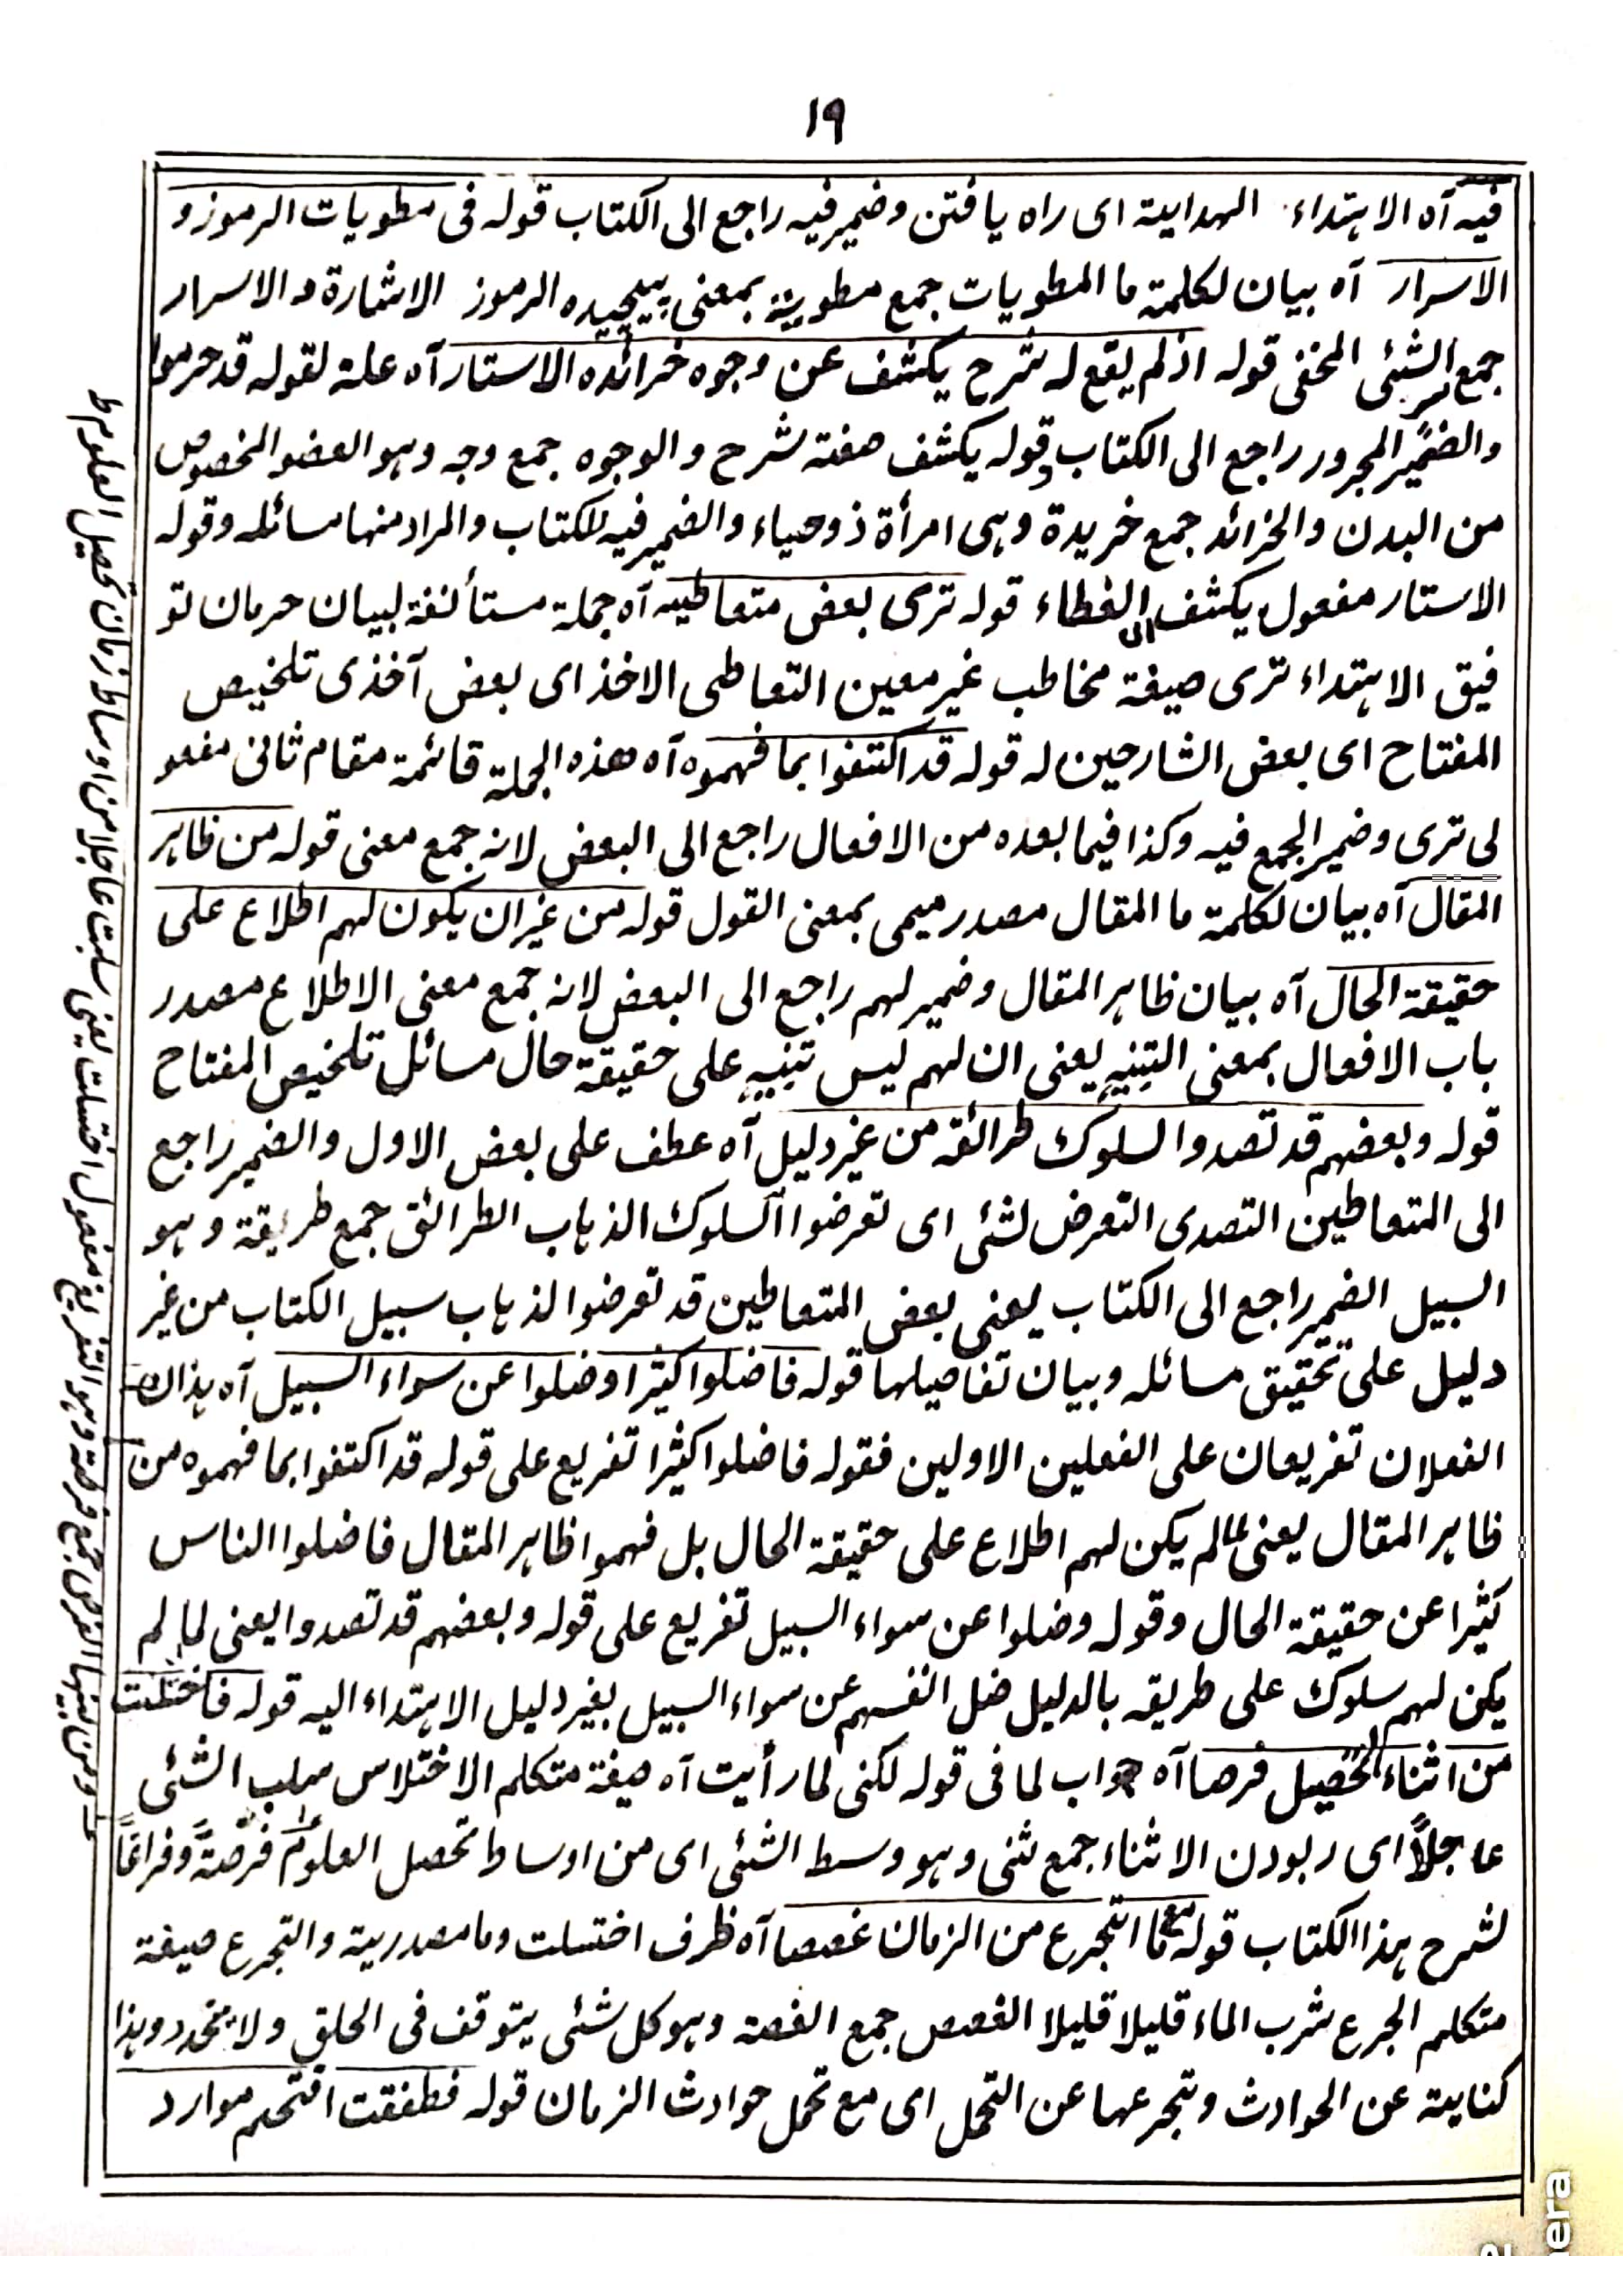 ١٩
فیه آه الاہتداء الہدایة ای راہ یافتن وضمیر فیه راجع الی الکتاب قوله فی مطویات الرموز و
الاسرار آه بیان لکلمة ما المطویات جمع مطویة بمعنی پیچیدہ الرموز الاشارة والاسرار
جمع السر الشئی المخفی قوله اذ لم یقع له شرح یکشف عن وجوه خرائده الاستار آه علة لقوله قد حرموا
والضمیر المجرور راجع الی الکتاب وقوله یکشف صفة شرح والوجوه جمع وجه وہو العضو المخصوص
من البدن والخرائد جمع خریدة وہی امرأة ذو حیاء والضمیر فیه للکتاب والمراد منہا مسائله وقوله
الاستار مفعول یکشف ای الغطاء قوله تری بعض متعاطیه آه جملة مستأنفة لبیان حرمان تو
فیق الاہتداء تری صیغة مخاطب غیر معین التعاطی الاخذ ای بعض آخذی تلخیص
المفتاح ای بعض الشارحین له قوله قد اکتفوا بما فہموه آه هذه الجملة قائمة مقام ثانی مفعو
لی تری وضمیر الجمع فیه وکذا فیما بعده من الافعال راجع الی البعض لانه جمع معنی قوله من ظاہر
المقال آه بیان لکلمة ما المقال مصدر میمی بمعنی القول قوله من غیر ان یکون لہم اطلاع علی
حقیقة الحال آه بیان ظاہر المقال وضمیر لہم راجع الی البعض لانه جمع معنی الاطلاع مصدر
باب الافعال بمعنی التنبیه یعنی ان لہم لیس تنبیه علی حقیقة حال مسائل تلخیص المفتاح
قوله وبعضہم قد تصدوا لسلوک طرائقه من غیر دلیل آه عطف علی بعض الاول والضمیر راجع
الی المتعاطین التصدی التعرض لشئی ای تعرضوا السلوک الذہاب الطرائق جمع طریقة وہو
السبیل الضمیر راجع الی الکتاب یعنی بعض المتعاطین قد تعرضوا لذہاب سبیل الکتاب من غیر
دلیل علی تحقیق مسائله وبیان تفاصیلها قوله فاضلوا کثیرا وضلوا عن سواء السبیل آه ہذان
الفعلان تفریعان علی الفعلین الاولین فقوله فاضلوا کثیرا تفریع علی قوله قد اکتفوا بما فہموه من
ظاہر المقال یعنی لما لم یکن لہم اطلاع علی حقیقة الحال بل فہموا ظاہر المقال فاضلوا الناس
کثیرا عن حقیقة الحال وقوله وضلوا عن سواء السبیل تفریع علی قوله وبعضہم قد تصدوا یعنی لما لم
یکن لہم سلوک علی طریقه بالدلیل ضل انفسہم عن سواء السبیل بغیر دلیل الاہتداء الیه قوله فاختلست
من اثناء التحصیل فرصا آه جواب لما فی قوله لکنی لما رأیت آه صیغة متکلم الاختلاس سلب الشئی
عاجلاً ای ربودن الاثناء جمع ثنی وہو وسط الشئی ای من اوساط تحصل العلوم فرصةً وفراغاً
لشرح ہذا الکتاب قوله مع ما اتجرع من الزمان غصصا آه ظرف اختسلت وما مصدریة والتجرع صیغة
متکلم الجرع شرب الماء قلیلا قلیلا الغصص جمع الغصة وہو کل شئی یتوقف فی الحلق ولا ینحدر وہذا
کنایة عن الحوادث وتجرعہا عن التحمل ای مع تحمل حوادث الزمان قوله فطفقت اقتحم موارد